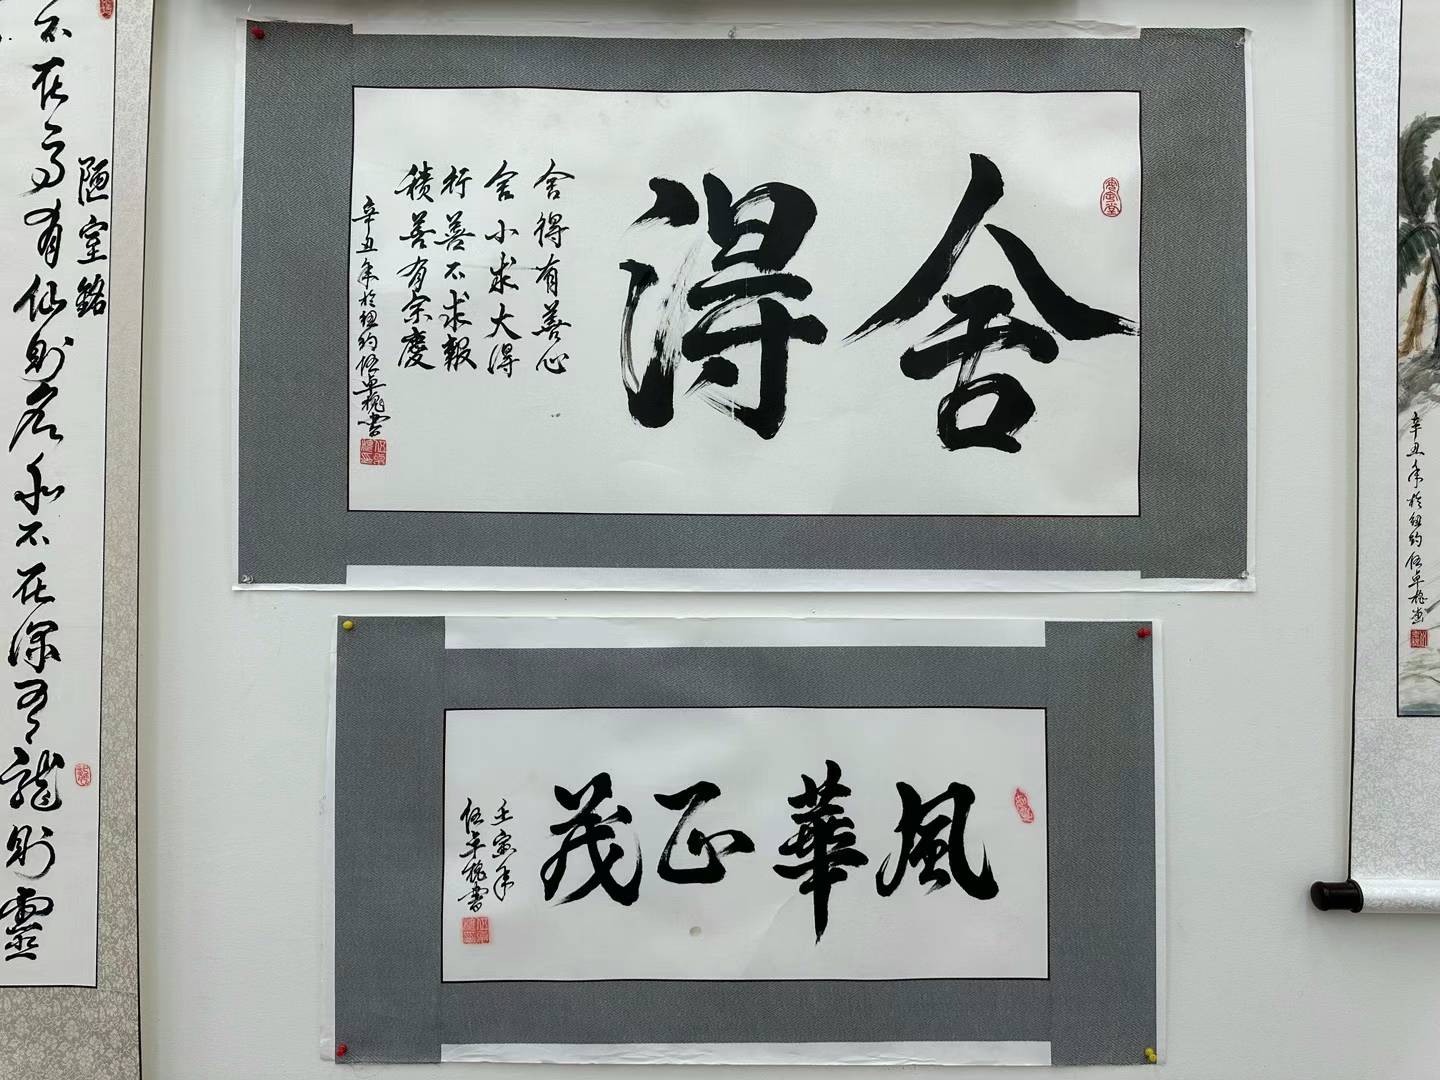 舍得
舍得有善心
舍小求大得
行善不求報
積善有余慶
辛丑年於紐約伍卓槐書
風華正茂
壬寅年
伍卓槐書
陋室銘
不在高有仙則名水不在深有龍則靈
辛丑年於紐約伍卓槐